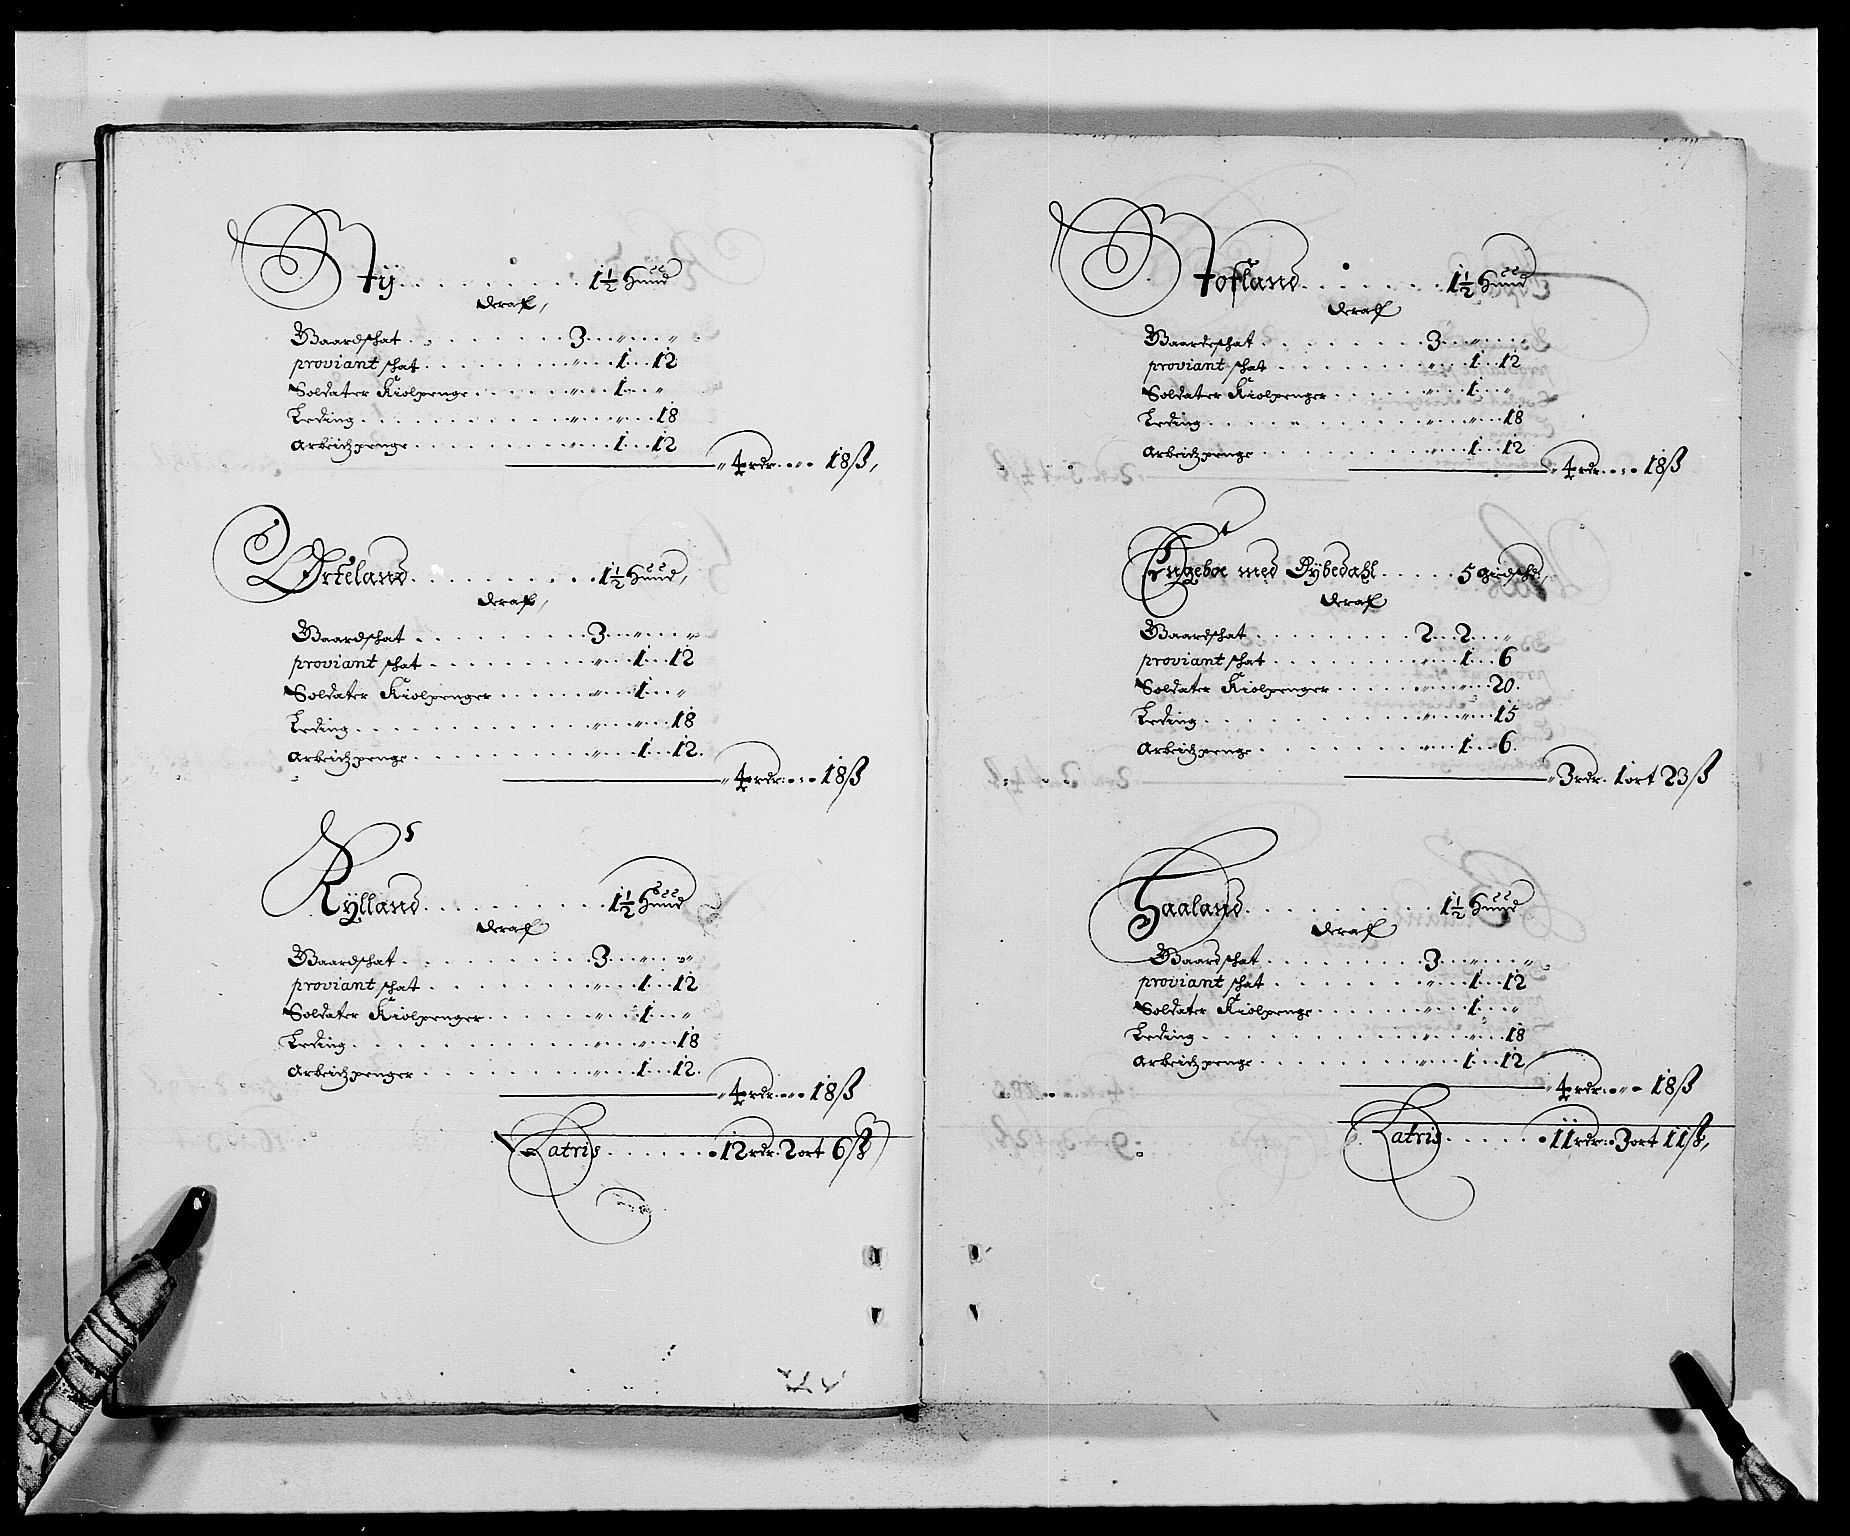 Ny . . . . . . . . 1½ Huud
Deraf,
Gaardschat . . . . . . . 3 . . „ . . „
proviant schat . . . . . . . „ . . 1 . . 12
Soldater Kiolpenge . . . . . „ . . 1 . . „
Leding . . . . . . . . . „ . . „ . . 18
Arbeidzpenge . . . . . . . „ . . 1 . . 12
„ 4 rdr . „ . 18 ß,
Ørteland . . . . . . . . 1½ Huud,
Deraf,
Gaardschat . . . . . . . 3 . . „ . . „
proviant schat . . . . . . . „ . . 1 . . 12
Soldater Kiolpenger . . . . . „ . . 1 . . „
Leding . . . . . . . . . „ . . „ . . 18
Arbeidzpenge . . . . . . . „ . . 1 . . 12.
„ 4 rdr . „ . 18 ß
Rÿlland . . . . . . . . 1½ Huud
Deraf
Gaardschat . . . . . . . 3 . . „ . . „
proviant schat . . . . . . . „ . . 1 . . 12
Soldater Kiolpenger . . . . . „ . . 1 . . „
Leding . . . . . . . . . „ . . „ . . 18
Arbeidzpenger . . . . . . . „ . . 1 . . 12.
„ 4 rdr . „ . 18 ß
Latris . . . . . . 12 rdr . 2 ort 6 ß
Tofland . . . . . . 1½ Huud
Deraf
Gaardeschat . . . . . . . 3 . . „ . . „
proviant schat . . . . . . . „ . . 1 . . 12
Soldater Kiolpenger . . . . . „ . . 1 . . „
Leding . . . . . . . . . „ . . „ . . 18
Arbeidzpenge . . . . . . . „ . . 1 . . 12
„ 4 rdr . „ . 18 ß
Engeboe med Øÿbedahl . . . . . 5 gidsche,
Deraf
Gaardschat . . . . . . . 2 . . 2 . . „
proviant schat . . . . . . . „ . . 1 . . 6
Soldater Kiolpenger . . . . . „ . . „ . . 20.
Leding . . . . . . . . . „ . . „ . . 15
Arbeidzpenge . . . . . . . „ . . 1 . . 6.
„ 3 rdr . 1 ort 23 ß
Haaland . . . . . . . . 1½ Huud
Deraf
Gaardschat . . . . . . . 3 . . „ . . „
proviant schat . . . . . . . „ . . 1 . . 12
Soldater Kiolpenge . . . . . „ . . 1 . . „
Leding . . . . . . . . . „ . . „ . . 18
Arbeidzpenge . . . . . . . „ . . 1 . . 12
„ 4 rdr . „ . 18 ß
Latris . . . . . . 11 rdr . 3 ort 11 ß,